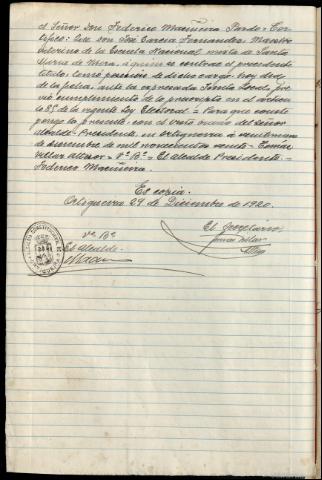 el Señor Don Federico Maciñeira Pardo = Cer-
tifico: Que don José García Fernandez, Maestro
interino de la Escuela Nacional mixta de Santa
María de Mera, á quien es contrae el precedente
titulo, tomó posesión de dicho cargo, hoy dia
de la fecha, ante la expresada Junta Local, pre-
vio cumplimiento de lo prescripto en el articulo
85 de la vigente Ley Electoral = Para que conste
pongo la presente, con el visto bueno del señor
Alcalde-Presidente, en Ortigueira á veintinueve
de diciembre de mil novecientos veinte = Tomás
Villar = Vº Bº = El Alcalde Presidente. =
Federico Maciñeira.
Es copia.
Ortigueira 29 de Diciembre de 1920.
El Secretario
Vº Bº
Tomás Villar
El Alcalde.